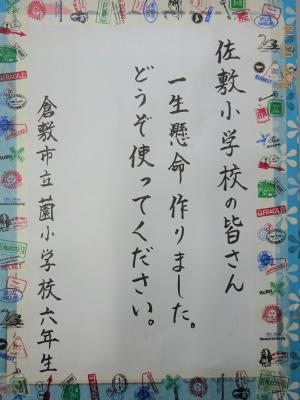 佐敷小学校の皆さん
一生懸命作りました。
どうぞ使ってください。
倉敷市立薗小学校六年生